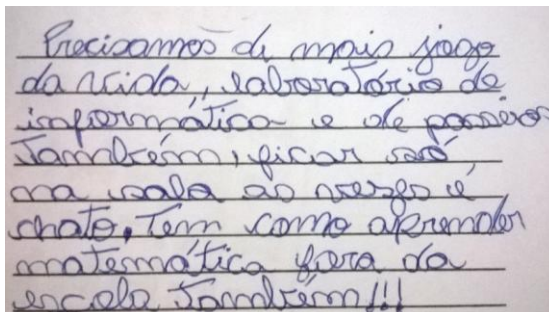 Precisamos de mais jogo
da vida, laboratório de
informática e de passeios
também, ficar só
na sala as vezes é
chato. Tem como aprender
matemática fora da
escola também!!!